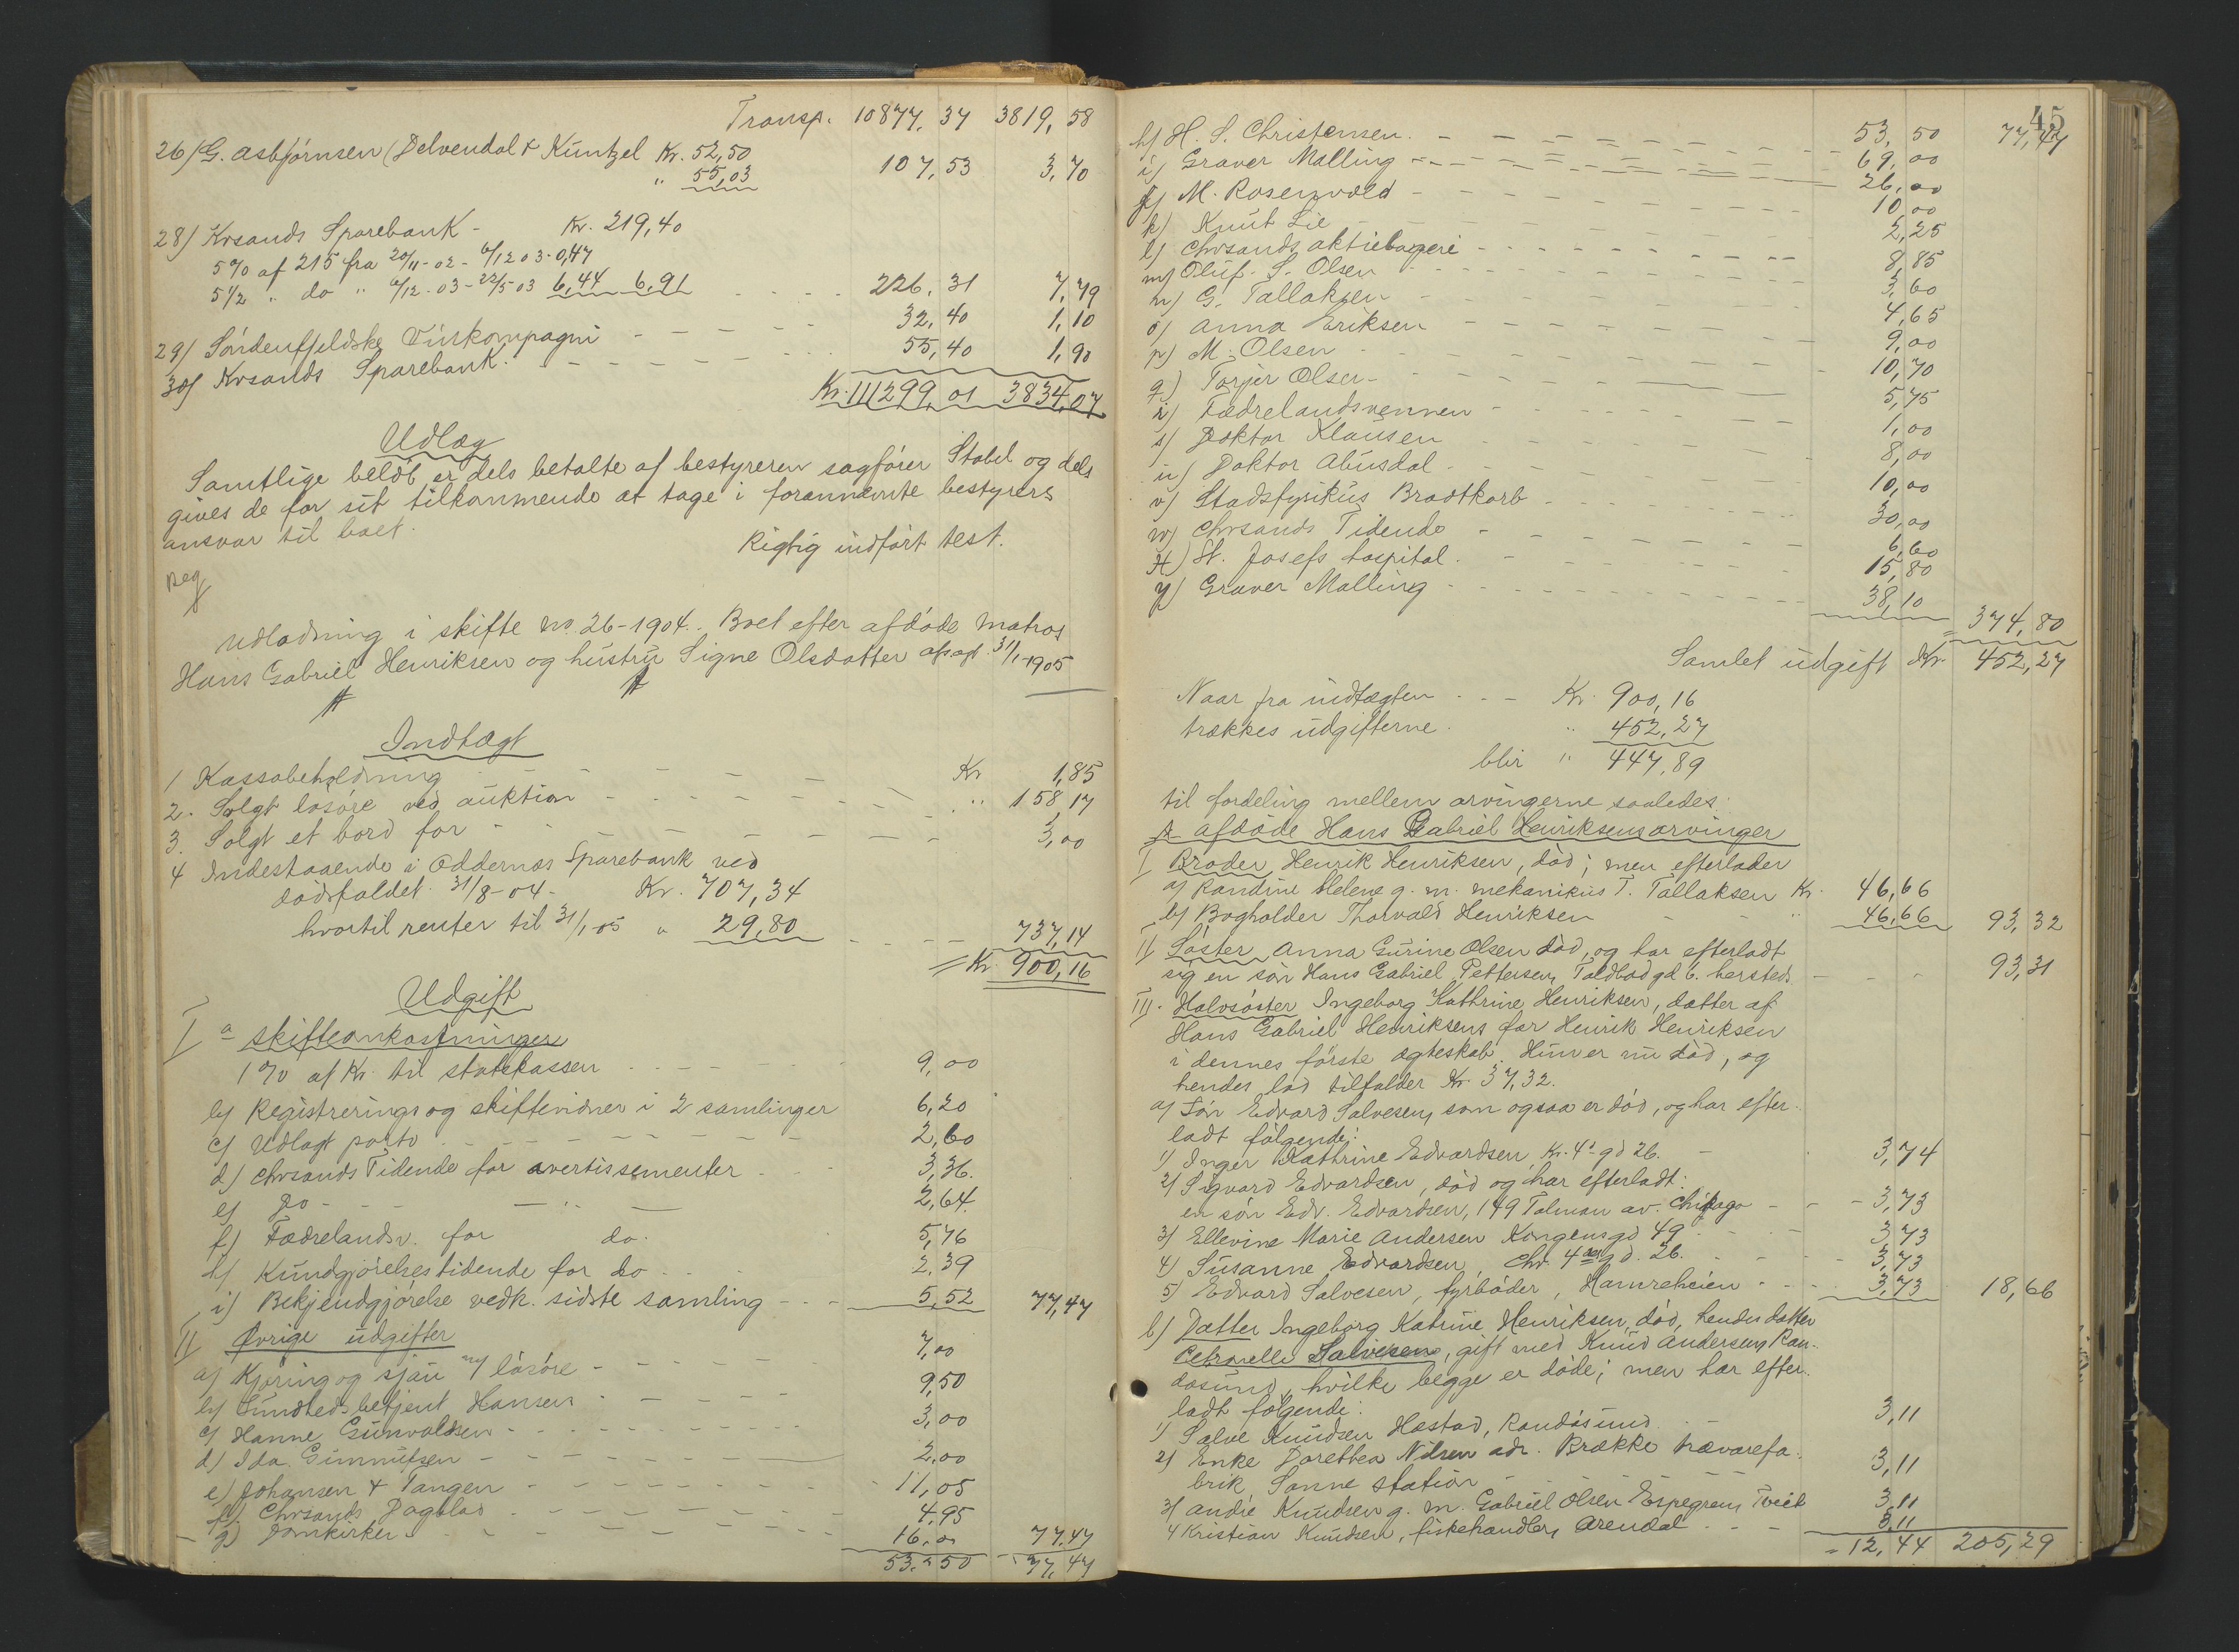 Transp. 10877,37 3819,58
26) G. Asbjörnsen (Delvendal & Küntzel Kr. 52,50
" 55,03 107,53 3,70
28) Krsands Sparebank - Kr. 219,40
5% af 215 fra 20/11-02 - 6/12 03 - 0,47
5½ " do " 6/12-03 - 22/5 03 6,44 6,91 226,31 7,79
29) Söndenfjeldske Vinkompagni 32,40 1,10
30) Krsands Sparebank. 55,40 1,90
Kr. 111299,01 3834,07
Udlæg
Samtlige belöb er dels betalte af bestyreren sagförer Stabel og dels
gives de for sit tilkommende at tage i forannævnte bestyrers
ansvar til boet.
Rigtig indfört test.
Udlodning i skifte no. 26-1904. Boet efter afdöde matros
Hans Gabriel Henriksen og hustru Signe Olsdatter afsagt 31/1-1905
Indtægt
1 Kassabeholdning Kr 1,85
2. Solgt lösöre ved auktion " 158,17
3. Solgt et bord for 3,00
4 Indestaaende i Oddernes Sparebank ved
dödsfaldet 31/8-04 - Kr. 707,34
hvortil renter til 31/1-05 " 29,80 737,14
= Kr. 900,16
Udgift
I a skifteomkostninger
1% af Kr. til statskassen 9,00
b) Registrerings og skiftevidner i 2 samlinger 6,20
c) Udlagt porto 2,60
d) Chrsands Tidende for avertissementer 3,36.
e) Do - - 2,64.
f) Fædrelandsv. for do. 5,76
h) Kundgjörelsestidende for do 2,39
i) Bekjendtgjörelse vedk. sidste samling 5,52 77,47
II Øvrige udgifter
a) Kjöring og sjau m/ lösöre 7,00
b) Sundhedsbetjent Hansen 9,50
c) Hanne Gunvaldsen 3,00
d) Ida Gunnufsen 2,00
e) Johansen & Tangen 11,05
f) Chrsands Dagblad 4,95
g) Domkirken 16,00 77,47
53,50 77,47
45
h) H. S. Christensen 53,50 77,47
i) Graver Malling 69,00
j) M. Rosenvold 26,00
k) Knut Lie 10,00
l) Chrsands aktiebageri 2,25
m) Oluf. S. Olsen 8,85
n) G. Tallaksen 3,60
o) Anna Eriksen 4,65
p) M. Olsen 9,00
q) Torjer Olsen 10,70
r) Fædrelandsvennen 5,75
s) Doktor Klausen 1,00
u) Doktor Abusdal 8,00
v) Stadsfysikus Bradtkorb 10,00
w) Chrsands Tidende 30,00
x) St. Josefs hospital 6,60
y) Graver Malling 15,80
38,10 = 374,80
Samlet udgift Kr. 452,27
Naar fra indtægten Kr. 900,16
trækkes udgifterne " 452,27
blir " 447,89
til fordeling mellem arvingerne saaledes:
A afdöde Hans Gabriel Henriksens arvinger
I Broder Henrik Henriksen, död; men efterlader
a) Randine Helene g. m. mekanikus T. Tallaksen Kr. 46,66
b) Bogholder Thorvald Henriksen " 46,66 93,32
II Söster Anna Gurine Olsen död, og har efterladt
sig en sön Hans Gabriel Pettersen, Toldbodgd 6. hersteds 93,31
III. Halvsöster Ingeborg Kathrine Henriksen, datter af
Hans Gabriel Henriksens far Henrik Henriksen
i dennes förste ægteskab. Hun er nu död, og
hendes lod tilfalder Kr. 37,32.
a) Sön Edvard Salvesen, som ogsaa er död, og har efter-
ladt fölgende:
1) Inger Kathrine Edvardsen, Kr. 4de gd 26. 3,74
2) Sigvard Edvardsen, död og har efterladt:
en sön Edv. Edvardsen, 149 Talman av. Chikago 3,73
3) Ellevine Marie Andersen Kongensgd 49 3,73
4) Susanne Edvardsen, Chr. 4des gd. 26. 3,73
5) Edvard Salvesen, fyrböder, Hamreheien 3,73 18,66
b) Datter Ingeborg Katrine Henriksen, död, hendes datter
Petronelle Salvesen, gift med Knud Andersen, Ran-
dösund, hvilke begge er döde; men har efter-
ladt fölgende:
1) Salve Knudsen Hestad, Randösund 3,11
2) Enke Dorethea Nilsen adr. Brække trævarefa-
brik Sanne station 3,11
3) Andie Knudsen g. m. Gabriel Olsen Espegren, Tveit 3,11
4 Kristian Knudsen, fiskehandler, Arendal 3,11
= 12,44 205,29